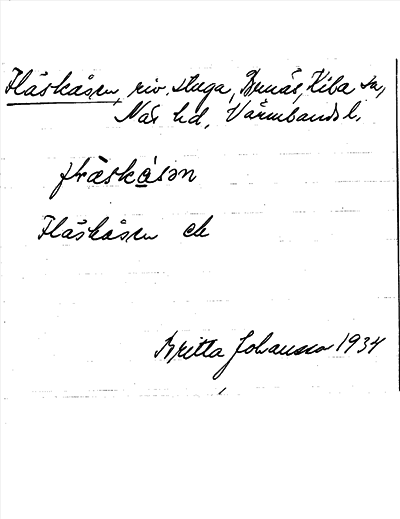 Fläskåsen, riv. stuga, Brunäs, Kila sn,
Näs hd, Värmlands l.
fläskåsən
Fläskåsen ek
Britta Johansson 1934